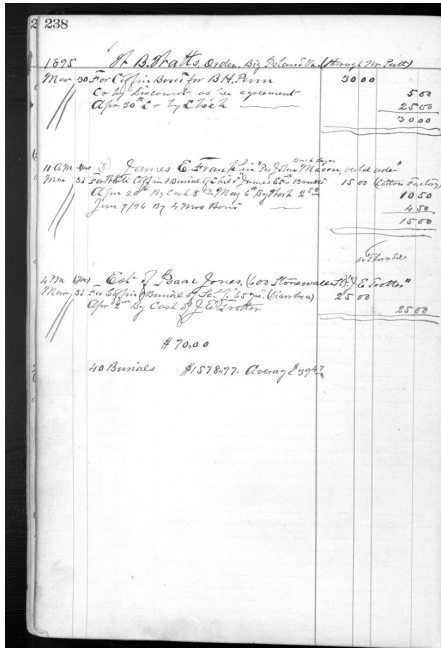 2 238
1895 W. B. Watts, Order, Big Island Va (through Mr Pratt)
Mar 30 For Coffin Boxed for B. H. Penn 30 00
Cr by Discount as per agreement 5 00
Apr 30th Cr by Check 25 00
30 00
11 AM James E. Franklin "Per John Mason, verbal order"
Mar 31 For White Coffin & Burial of child of James E 15 00 (Cotton Factory)
Apr 20th By Cash 8 May 6th By Work 2 50 10 50
Jan 7/96 By 4 4 50
15 00
4 PM Est of Isaac Jones, (600 Stonewall St) "J. E. Trotter"
Mar 31 For Coffin & Burial of Self 65 yrs 25 00
Apr 2nd By Cash of J. E. Trotter 25 00
$70.00
40 Burials $1578.77 Average 39 47